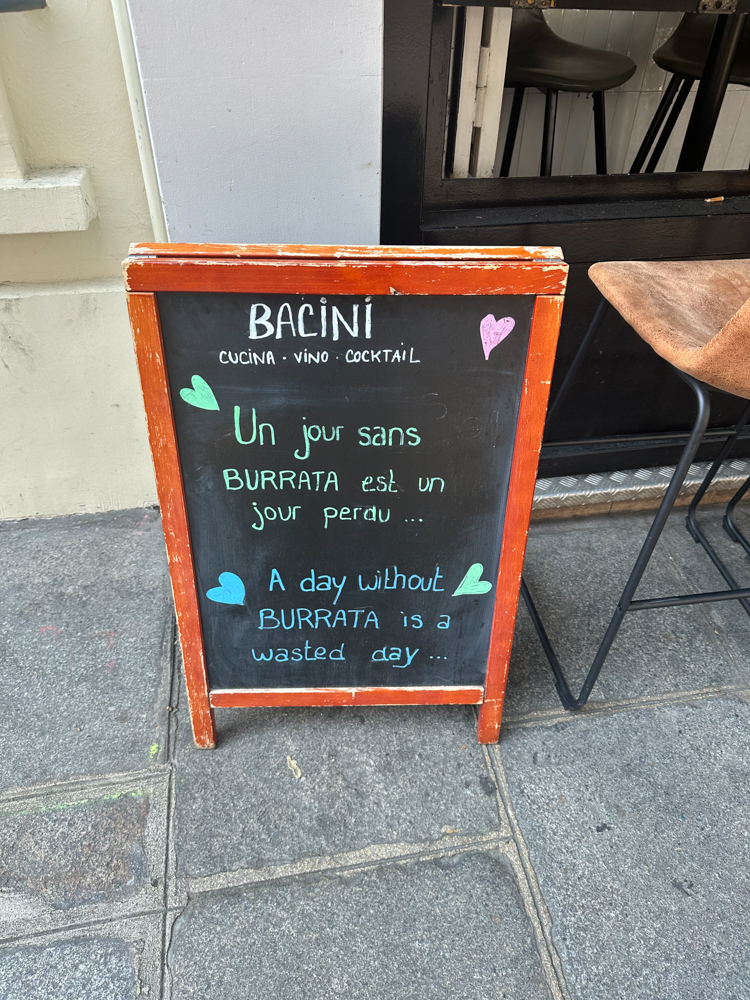 BACINI
CUCINA · VINO · COCKTAIL
Un jour sans
BURRATA est un
jour perdu ...
A day without
BURRATA is a
wasted day ...